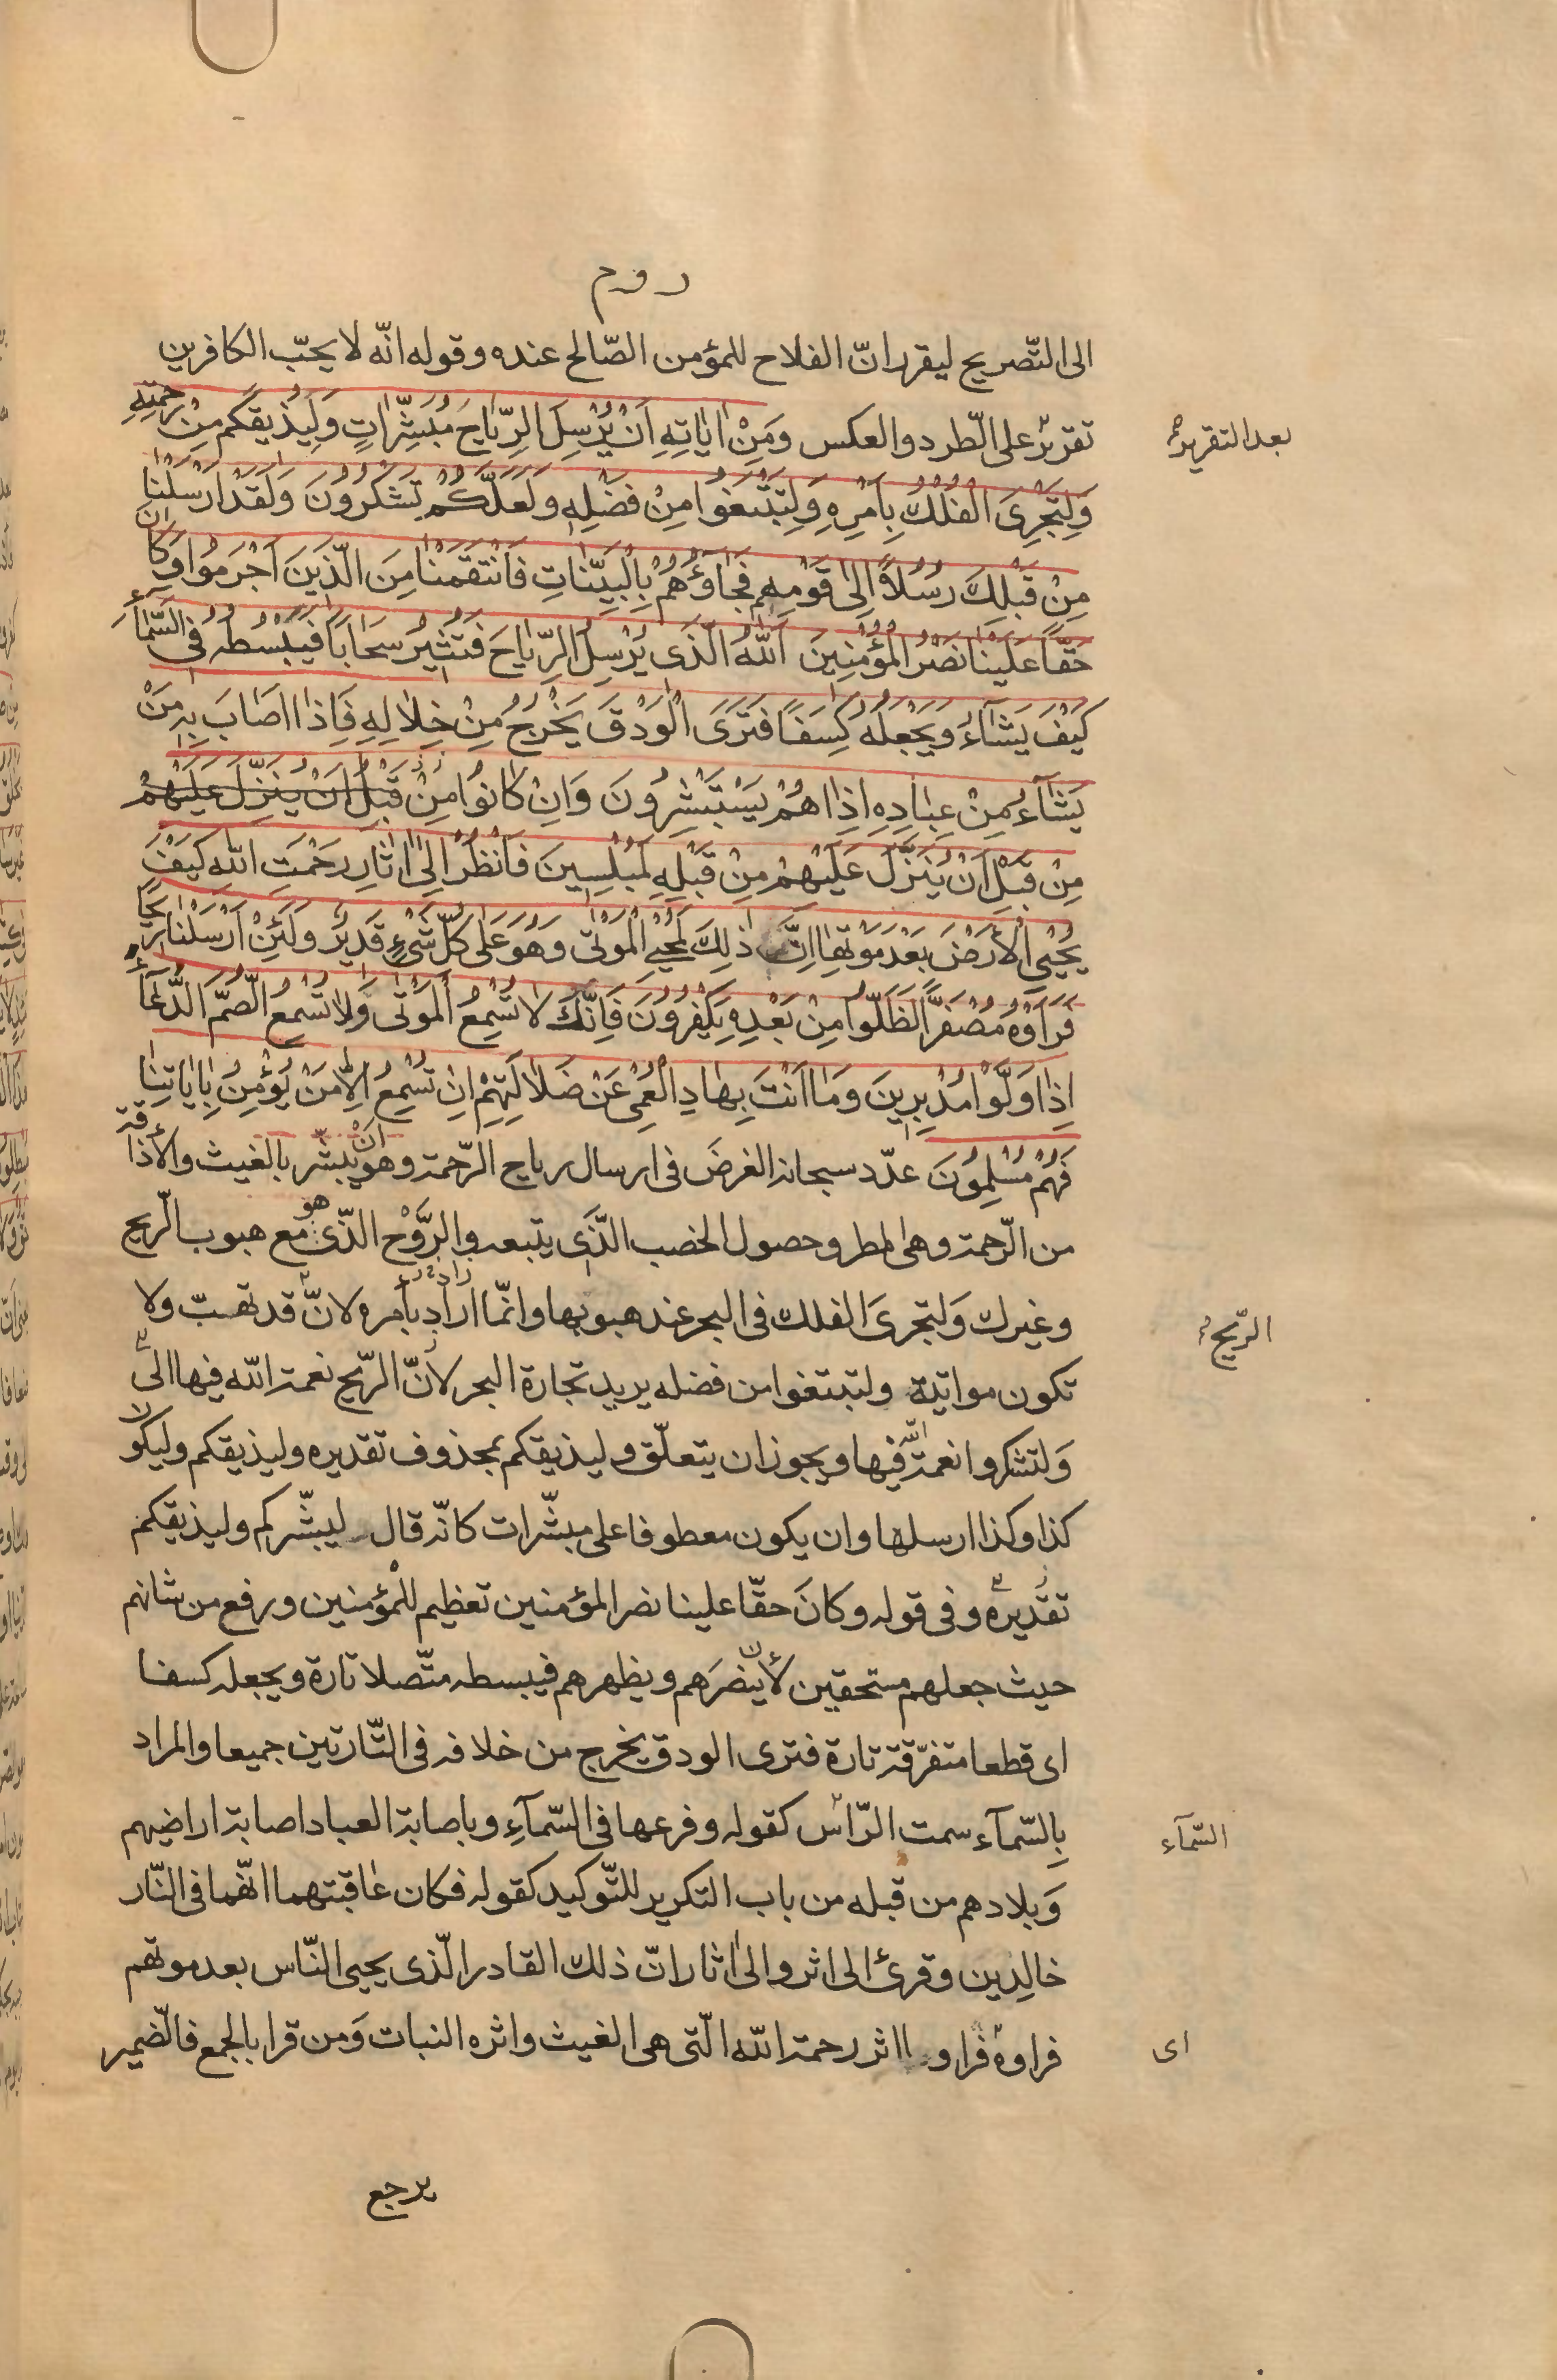 روم
الى التّصريح ليقرر انّ الفلاح للمؤمن الصّالح عنده وقوله انّه لا يحبّ الكافرين
تقريرٌ على الطّرد والعكس وَمِنْ اٰيَاتِهِ اَنْ يُرْسِلَ الرِّيَاحَ مُبَشِّرَاتٍ وَلِيُذيقَكُم مِنْ رَحْمَتِهِ
بعد التقرير
وَلِتَجْرِىَ الْفُلْكُ بِاَمْرِهِ وَلِتَبْتَغُوا مِنْ فَضْلِهِ وَلَعَلَّكُمْ تَشْكُرُونَ وَلَقَدْ اَرْسَلْنَا
مِنْ قَبْلِكَ رُسُلاً اِلَى قَوْمِهِم فَجَاؤُهُمْ بِالْبَيِّنَاتِ فَانْتَقَمْنَا مِنَ الَّذِينَ اَجْرَمُوا وَكَانَ
حَقًّا عَلَيْنَا نَصْرُ الْمُؤْمِنِينَ اَللّٰهُ الَّذى يُرْسِلُ الرِّيَاحَ فَتُثيرُ سَحَابًا فَيَبْسُطُهُ فِى السَّمَآءِ
كَيْفَ يَشَآءُ وَيَجْعَلُهُ كِسَفًا فَتَرَى الْوَدْقَ يَخْرُجُ مِنْ خِلَالِهِ فَاِذَا اَصَابَ بِهِ مَنْ
يَشَآءُ مِنْ عِبَادِهِ اِذَا هُمْ يَسْتَبْشِرُونَ وَاِنْ كَانُوا مِنْ قَبْلِ اَنْ يُنَزَّلَ عَلَيْهِمْ
مِنْ قَبْلِ اَنْ يُنَزَّلَ عَلَيْهِمْ مِنْ قَبْلِهِ لَمُبْلِسِينَ فَانْظُرْ اِلَى اٰثَارِ رَحْمَتِ اللّٰهِ كَيْفَ
يُحْيِى الْاَرْضَ بَعْدَ مَوْتِهَا اِنَّ ذٰلِكَ لَمُحْيِى الْمَوْتَى وَهُوَ عَلَى كُلِّ شَىْءٍ قَدِيرٌ وَلَئِنْ اَرْسَلْنَا رِيحًا
فَرَاَوْهُ مُصْفَرًّا لَظَلُّوا مِنْ بَعْدِهِ يَكْفُرُونَ فَاِنَّكَ لَا تُسْمِعُ الْمَوْتَى وَلَا تُسْمِعُ الصُّمَّ الدُّعَآءَ
اِذَا وَلَّوْا مُدْبِرِينَ وَمَا اَنْتَ بِهَادِ الْعُمْىِ عَنْ ضَلَالَتِهِمْ اِنْ تُسْمِعُ اِلَّا مَنْ يُؤْمِنُ بِاٰيَاتِنَا
فَهُمْ مُسْلِمُونَ عدّد سبحانه الغرضَ فى ارسال رياح الرّحمة وهو انْ يبشّر بالغيث والاذاقة
من الرّحمة وهى المطر وحصول الخصب الّذى يتبعه والرَّوْح الذّى هو مع هبوب الرّيح
وغيرك وَلتجرىَ الفلك فى البحر عند هبوبها وانّما اراد بأمره لانّ قد تهبّ ولا
الرّيح
تكون مواتية ولتبتغوا من فضله يريد تجارة البحر لأنّ الرّيح نعمة اللّه فيها الى
وَلتشكروا نعمة اللّه فيها ويجوز ان يتعلّق وليذيقكم بمحذوف تقديره وليذيقكم وليكون
كذا وكذا ارسلها وان يكون معطوفا على مبشّرات كانّه قال ليبشّركم وليذيقكم
تقديره وفى قوله وكانَ حقّا علينا نصر المؤمنين تعظيم للمُؤمنين ورفع من شانهم
حيث جعلهم مستحقين لأن ينصرَهم ويظهرهم فيبسطه متّصلا تارة ويجعله كسفا
اى قطعا متفرّقة تارة فترى الودق يخرج من خلافه فى التّارتين جميعا والمراد
بِالسّمآء سمت الرّأس كقوله وفرعها فى السّمآءِ وباصابة العباد اصابة اراضيهم
السّمآء
وَبلادهم من قبله من باب التكرير للتّوكيد كقوله فكان عٰاقبتهما انّهما فى النّار
خالِدين وقرئ الى اثر والىٰ اٰثار انّ ذلك القادر الّذى يحيى النّاس بعد موتهم
فراوه فراوا اثر رحمة اللّه الّتى هى الغيث واثره النبات وَمن قرا بالجمع فالضّمير
اى
يرجع